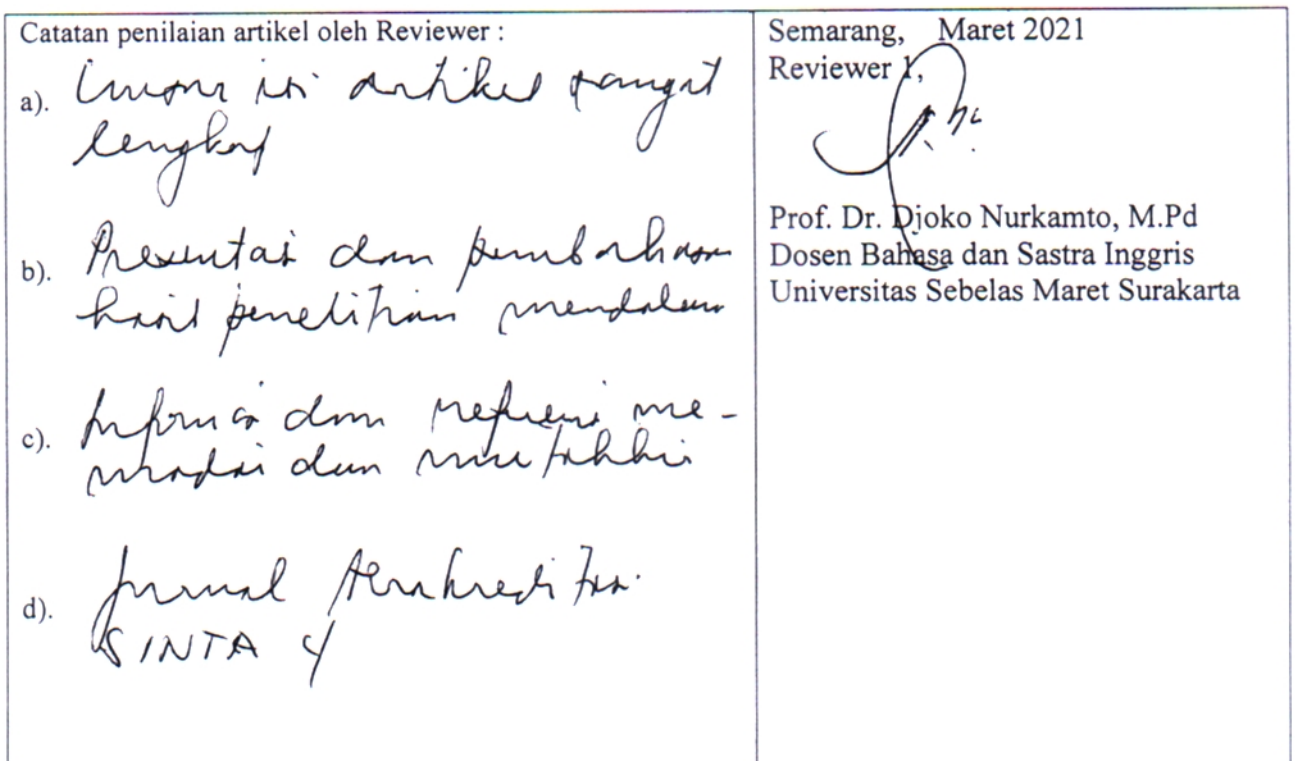 Catatan penilaian artikel oleh Reviewer :
a). Unsur isi artikel sangat
lengkap
b). Presentasi dan pembahasan
hasil penelitian mendalam
c). Informasi dan referensi me-
madai dan mutakhir
d). Jurnal terakreditasi
SINTA 4
Semarang, Maret 2021
Reviewer 1,
Prof. Dr. Djoko Nurkamto, M.Pd
Dosen Bahasa dan Sastra Inggris
Universitas Sebelas Maret Surakarta